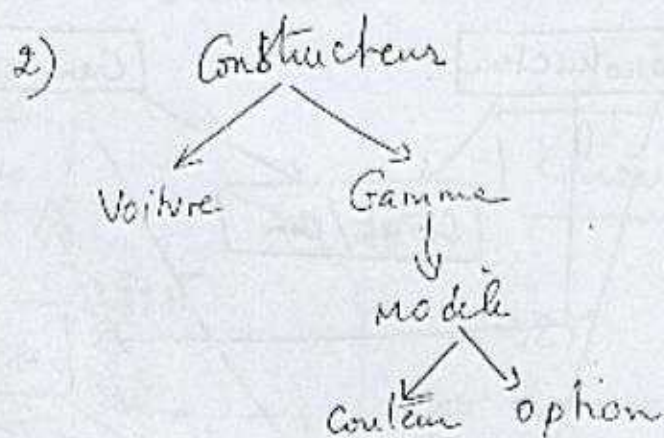 2) Constructeur
Voiture Gamme
Modèle
Couleur option